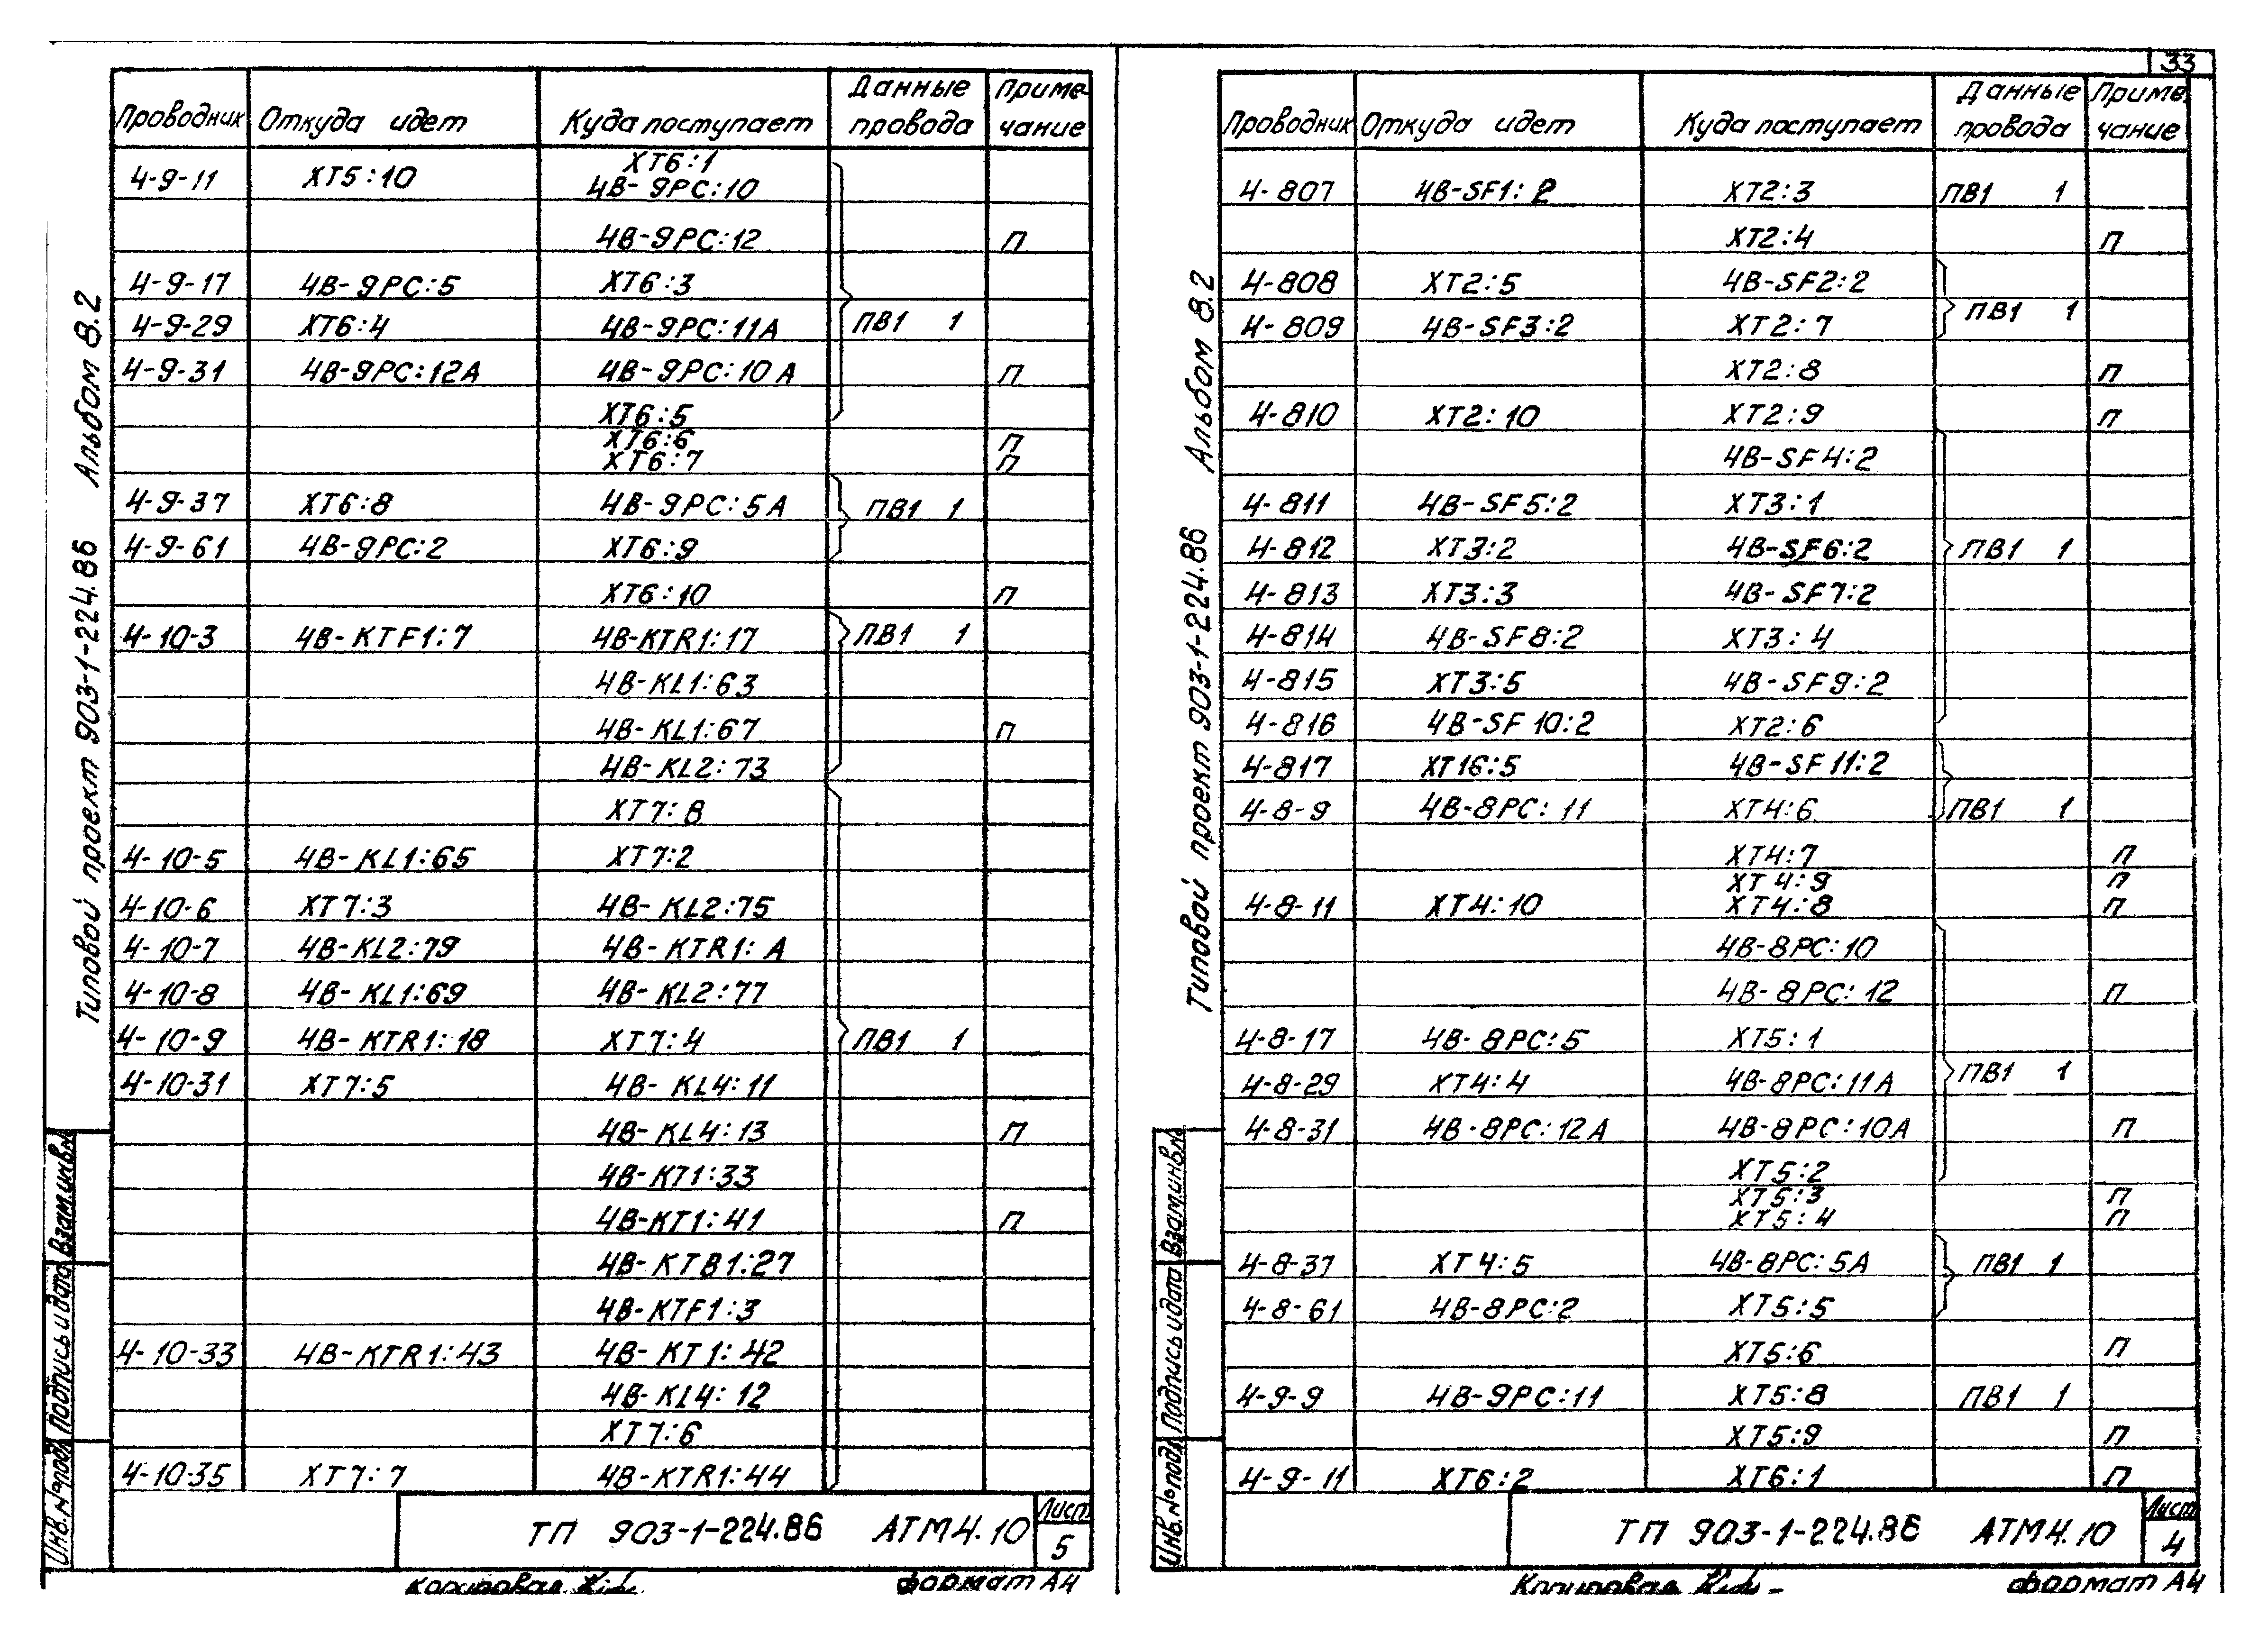 Проводник Откуда идет Куда поступает Данные провода Приме-чание
XT6:1
4-9-11 XT5:10 4В-9РС:10
4В-9РС:12 П
4-9-17 4В-9РС:5 XT6:3
4-9-29 XT6:4 4В-9РС:11А ПВ1 1
4-9-31 4В-9РС:12А 4В-9РС:10А П
XT6:5
XT6:6 П
XT6:7 П
4-9-37 XT6:8 4В-9РС:5А ПВ1 1
4-9-61 4В-9РС:2 XT6:9
XT6:10 П
4-10-3 4В-KTF1:7 4В-KTR1:17 ПВ1 1
4В-KL1:63
4В-KL1:67 П
4В-KL2:73
XT7:8
4-10-5 4В-KL1:65 XT7:2
4-10-6 XT7:3 4В-KL2:75
4-10-7 4В-KL2:79 4В-KTR1:А
4-10-8 4В-KL1:69 4В-KL2:77
4-10-9 4В-KTR1:18 XT7:4 ПВ1 1
4-10-31 XT7:5 4В-KL4:11
4В-KL4:13 П
4В-KT1:33
4В-KT1:41 П
4В-KTВ1:27
4В-KTF1:3
4-10-33 4В-KTR1:43 4В-KT1:42
4В-KL4:12
XT7:6
4-10-35 XT7:7 4В-KTR1:44
ТП 903-1-224.86 АТМ4.10 Лист 5
Копировал формат А4
Типовой проект 903-1-224.86 Альбом 8.2
Инв.№подл. Подпись и дата Взам.инв.№
33
Проводник Откуда идет Куда поступает Данные провода Приме-чание
4-807 4В-SF1:2 XT2:3 ПВ1 1
XT2:4 П
4-808 XT2:5 4В-SF2:2
ПВ1 1
4-809 4В-SF3:2 XT2:7
XT2:8 П
4-810 XT2:10 XT2:9 П
4В-SF4:2
4-811 4В-SF5:2 XT3:1
4-812 XT3:2 4В-SF6:2 ПВ1 1
4-813 XT3:3 4В-SF7:2
4-814 4В-SF8:2 XT3:4
4-815 XT3:5 4В-SF9:2
4-816 4В-SF10:2 XT2:6
4-817 XT16:5 4В-SF11:2
4-8-9 4В-8РС:11 XT4:6 ПВ1 1
XT4:7 П
XT4:9 П
4-8-11 XT4:10 XT4:8 П
4В-8РС:10
4В-8РС:12 П
4-8-17 4В-8РС:5 XT5:1
4-8-29 XT4:4 4В-8РС:11А ПВ1 1
4-8-31 4В-8РС:12А 4В-8РС:10А П
XT5:2
XT5:3 П
XT5:4 П
4-8-37 XT4:5 4В-8РС:5А ПВ1 1
4-8-61 4В-8РС:2 XT5:5
XT5:6 П
4-9-9 4В-9РС:11 XT5:8 ПВ1 1
XT5:9 П
4-9-11 XT6:2 XT6:1 П
ТП 903-1-224.86 АТМ4.10 Лист 4
Копировал формат А4
Типовой проект 903-1-224.86 Альбом 8.2
Инв.№подл. Подпись и дата Взам.инв.№